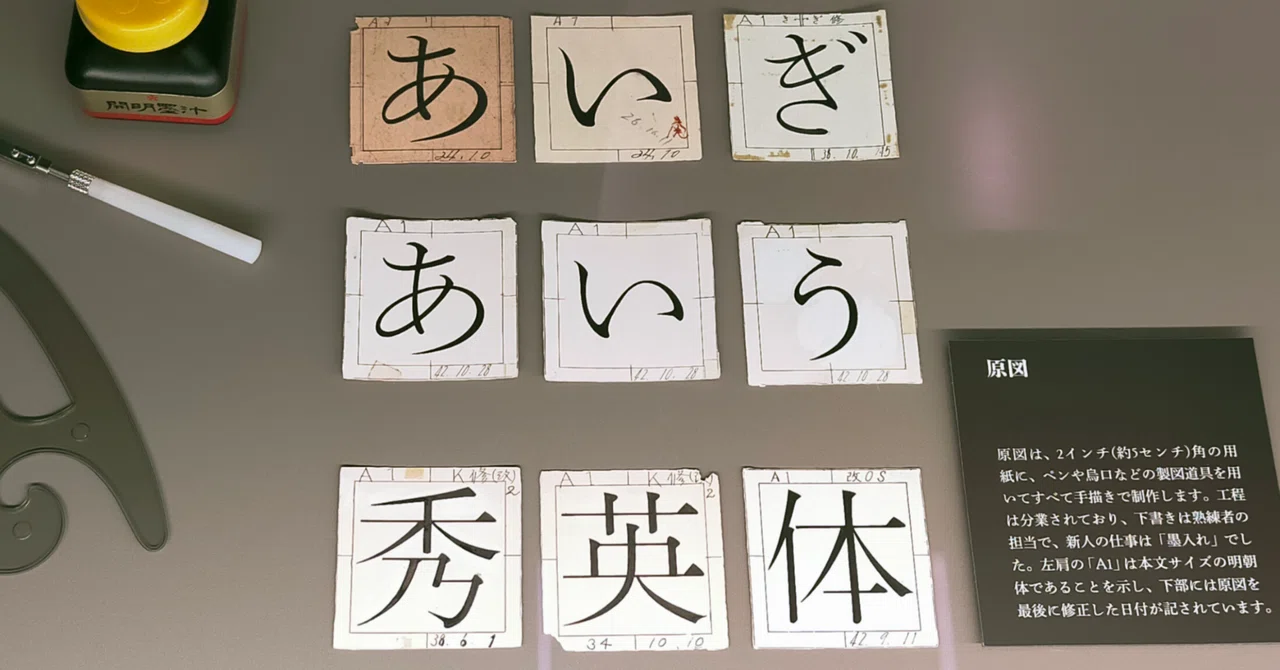 開明墨汁
A1
あ
24.10
A1
い
24.10
A1
ぎ
38.10.15
A1
あ
42.10.28
A1
い
42.10.28
A1
う
42.10.28
A1 K修(改)
2
秀
38.6.1
A1
2
英
34 10.10
A1
体
42 9.11
原図
原図は、2インチ(約5センチ)角の用
紙に、ペンや烏口などの製図道具を用
いてすべて手描きで制作します。工程
は分業されており、下書きは熟練者の
担当で、新人の仕事は「墨入れ」でし
た。左肩の「A1」は本文サイズの明朝
体であることを示し、下部には原図を
最後に修正した日付が記されています。